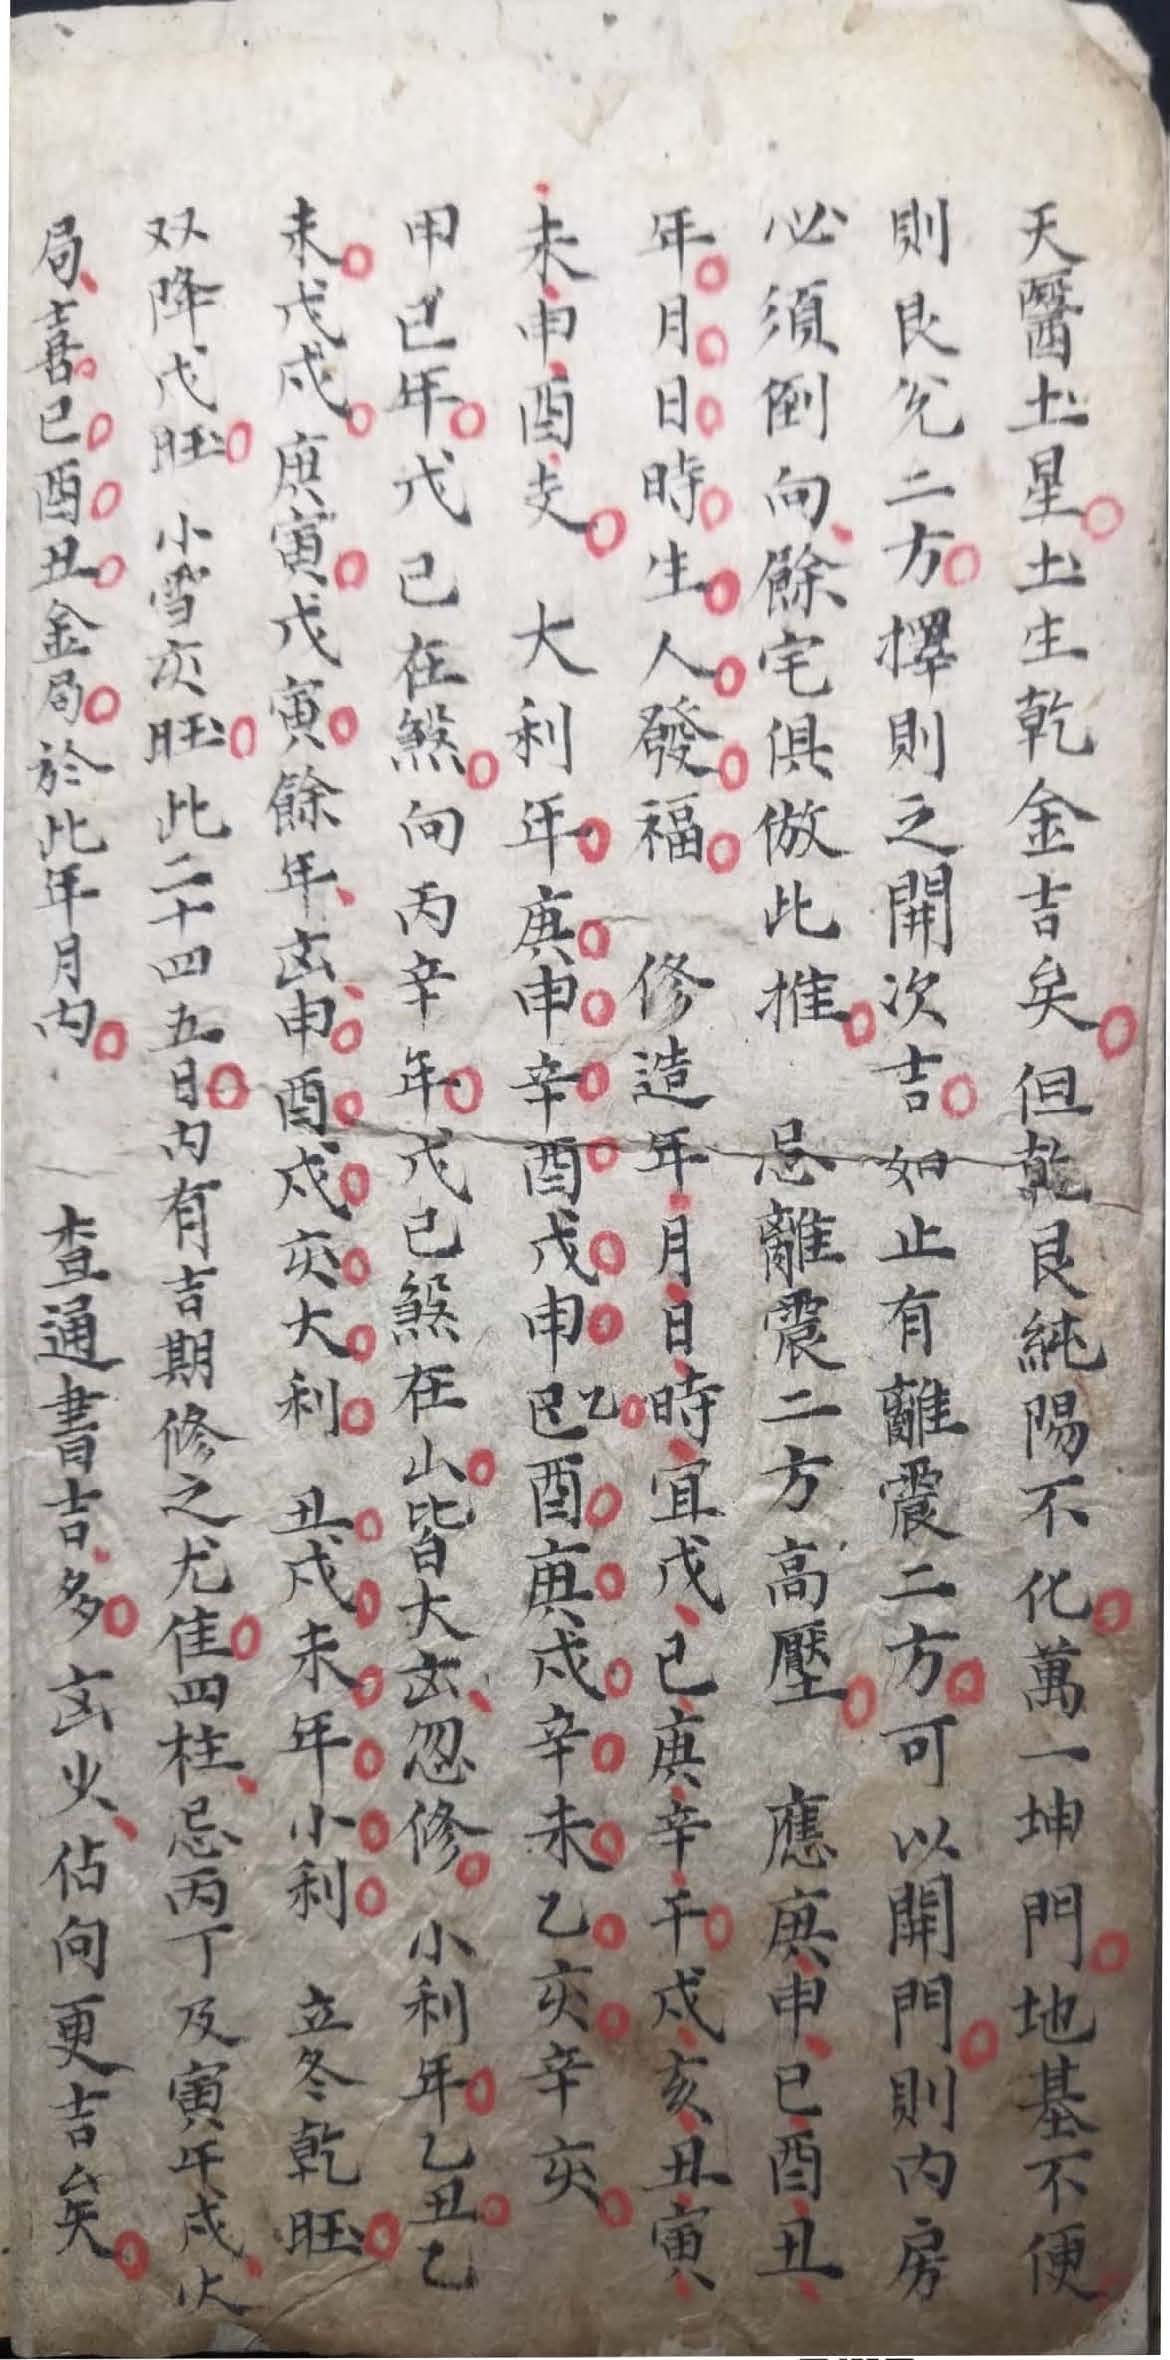 天醫土星土生乾金吉矣但乾艮純陽不化萬一坤門地基不便
則艮兌二方擇則之開次吉如止有離震二方可以開門則內房
必須倒向餘宅俱倣此推忌離震二方高壓應庚申巳酉丑
年月日時生人發福修造年月日時宜戊己庚辛干戌亥丑寅
未申酉支大利年庚申辛酉戊申乙巳酉庚戌辛未乙亥辛亥
甲己年戊己在煞向丙辛年戊己煞在山皆大凶忽修小利年乙丑乙
未戊戌庚寅戊寅餘年凶申酉戌亥大利丑戌未年小利立冬乾旺
双降戊旺小雪亥旺此二十四五日內有吉期修之尤佳四柱忌丙丁及寅午戌火
局喜巳酉丑金局於此年月內查通書吉多凶少佔向更吉矣